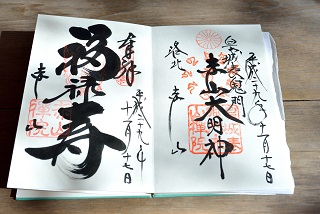 平成二九年十一月十七日
皇城表鬼門
赤山大明神
洛北 赤山
奉拝
平成二九年十一月十七日
福禄寿
赤山
赤山禅院